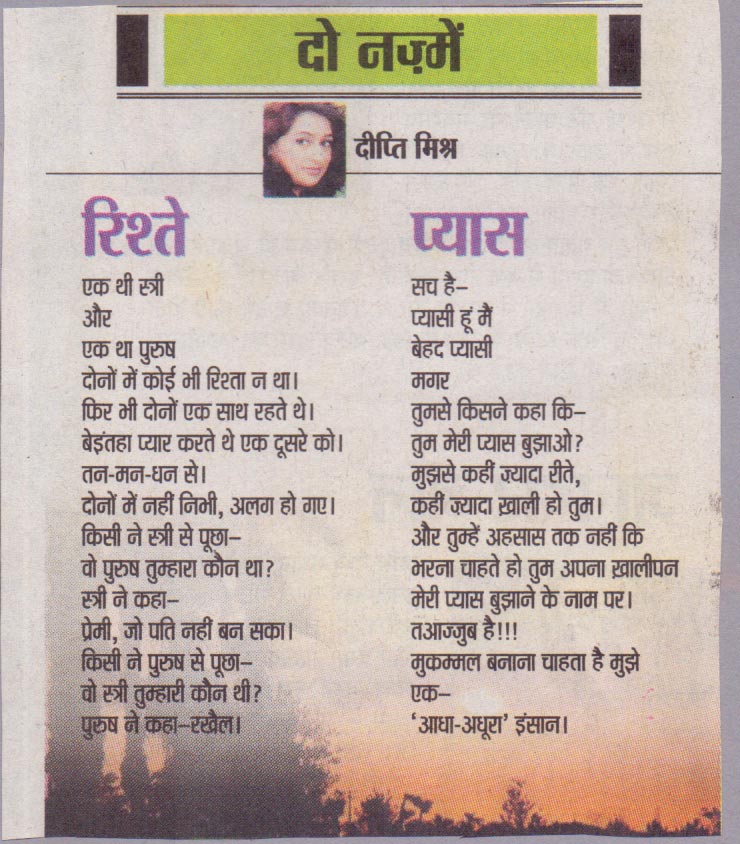 दो नज़्में
दीप्ति मिश्र
रिश्ते
एक थी स्त्री
और
एक था पुरुष
दोनों में कोई भी रिश्ता न था।
फिर भी दोनों एक साथ रहते थे।
बेइंतहा प्यार करते थे एक दूसरे को।
तन-मन-धन से।
दोनों में नहीं निभी, अलग हो गए।
किसी ने स्त्री से पूछा–
वो पुरुष तुम्हारा कौन था?
स्त्री ने कहा–
प्रेमी, जो पति नहीं बन सका।
किसी ने पुरुष से पूछा–
वो स्त्री तुम्हारी कौन थी?
पुरुष ने कहा–रखैल।
प्यास
सच है–
प्यासी हूं मैं
बेहद प्यासी
मगर
तुमसे किसने कहा कि–
तुम मेरी प्यास बुझाओ?
मुझसे कहीं ज़्यादा रीते,
कहीं ज़्यादा ख़ाली हो तुम।
और तुम्हें अहसास तक नहीं कि
भरना चाहते हो तुम अपना ख़ालीपन
मेरी प्यास बुझाने के नाम पर।
तआज्जुब है!!!
मुकम्मल बनाना चाहता है मुझे
एक–
‘आधा-अधूरा’ इंसान।